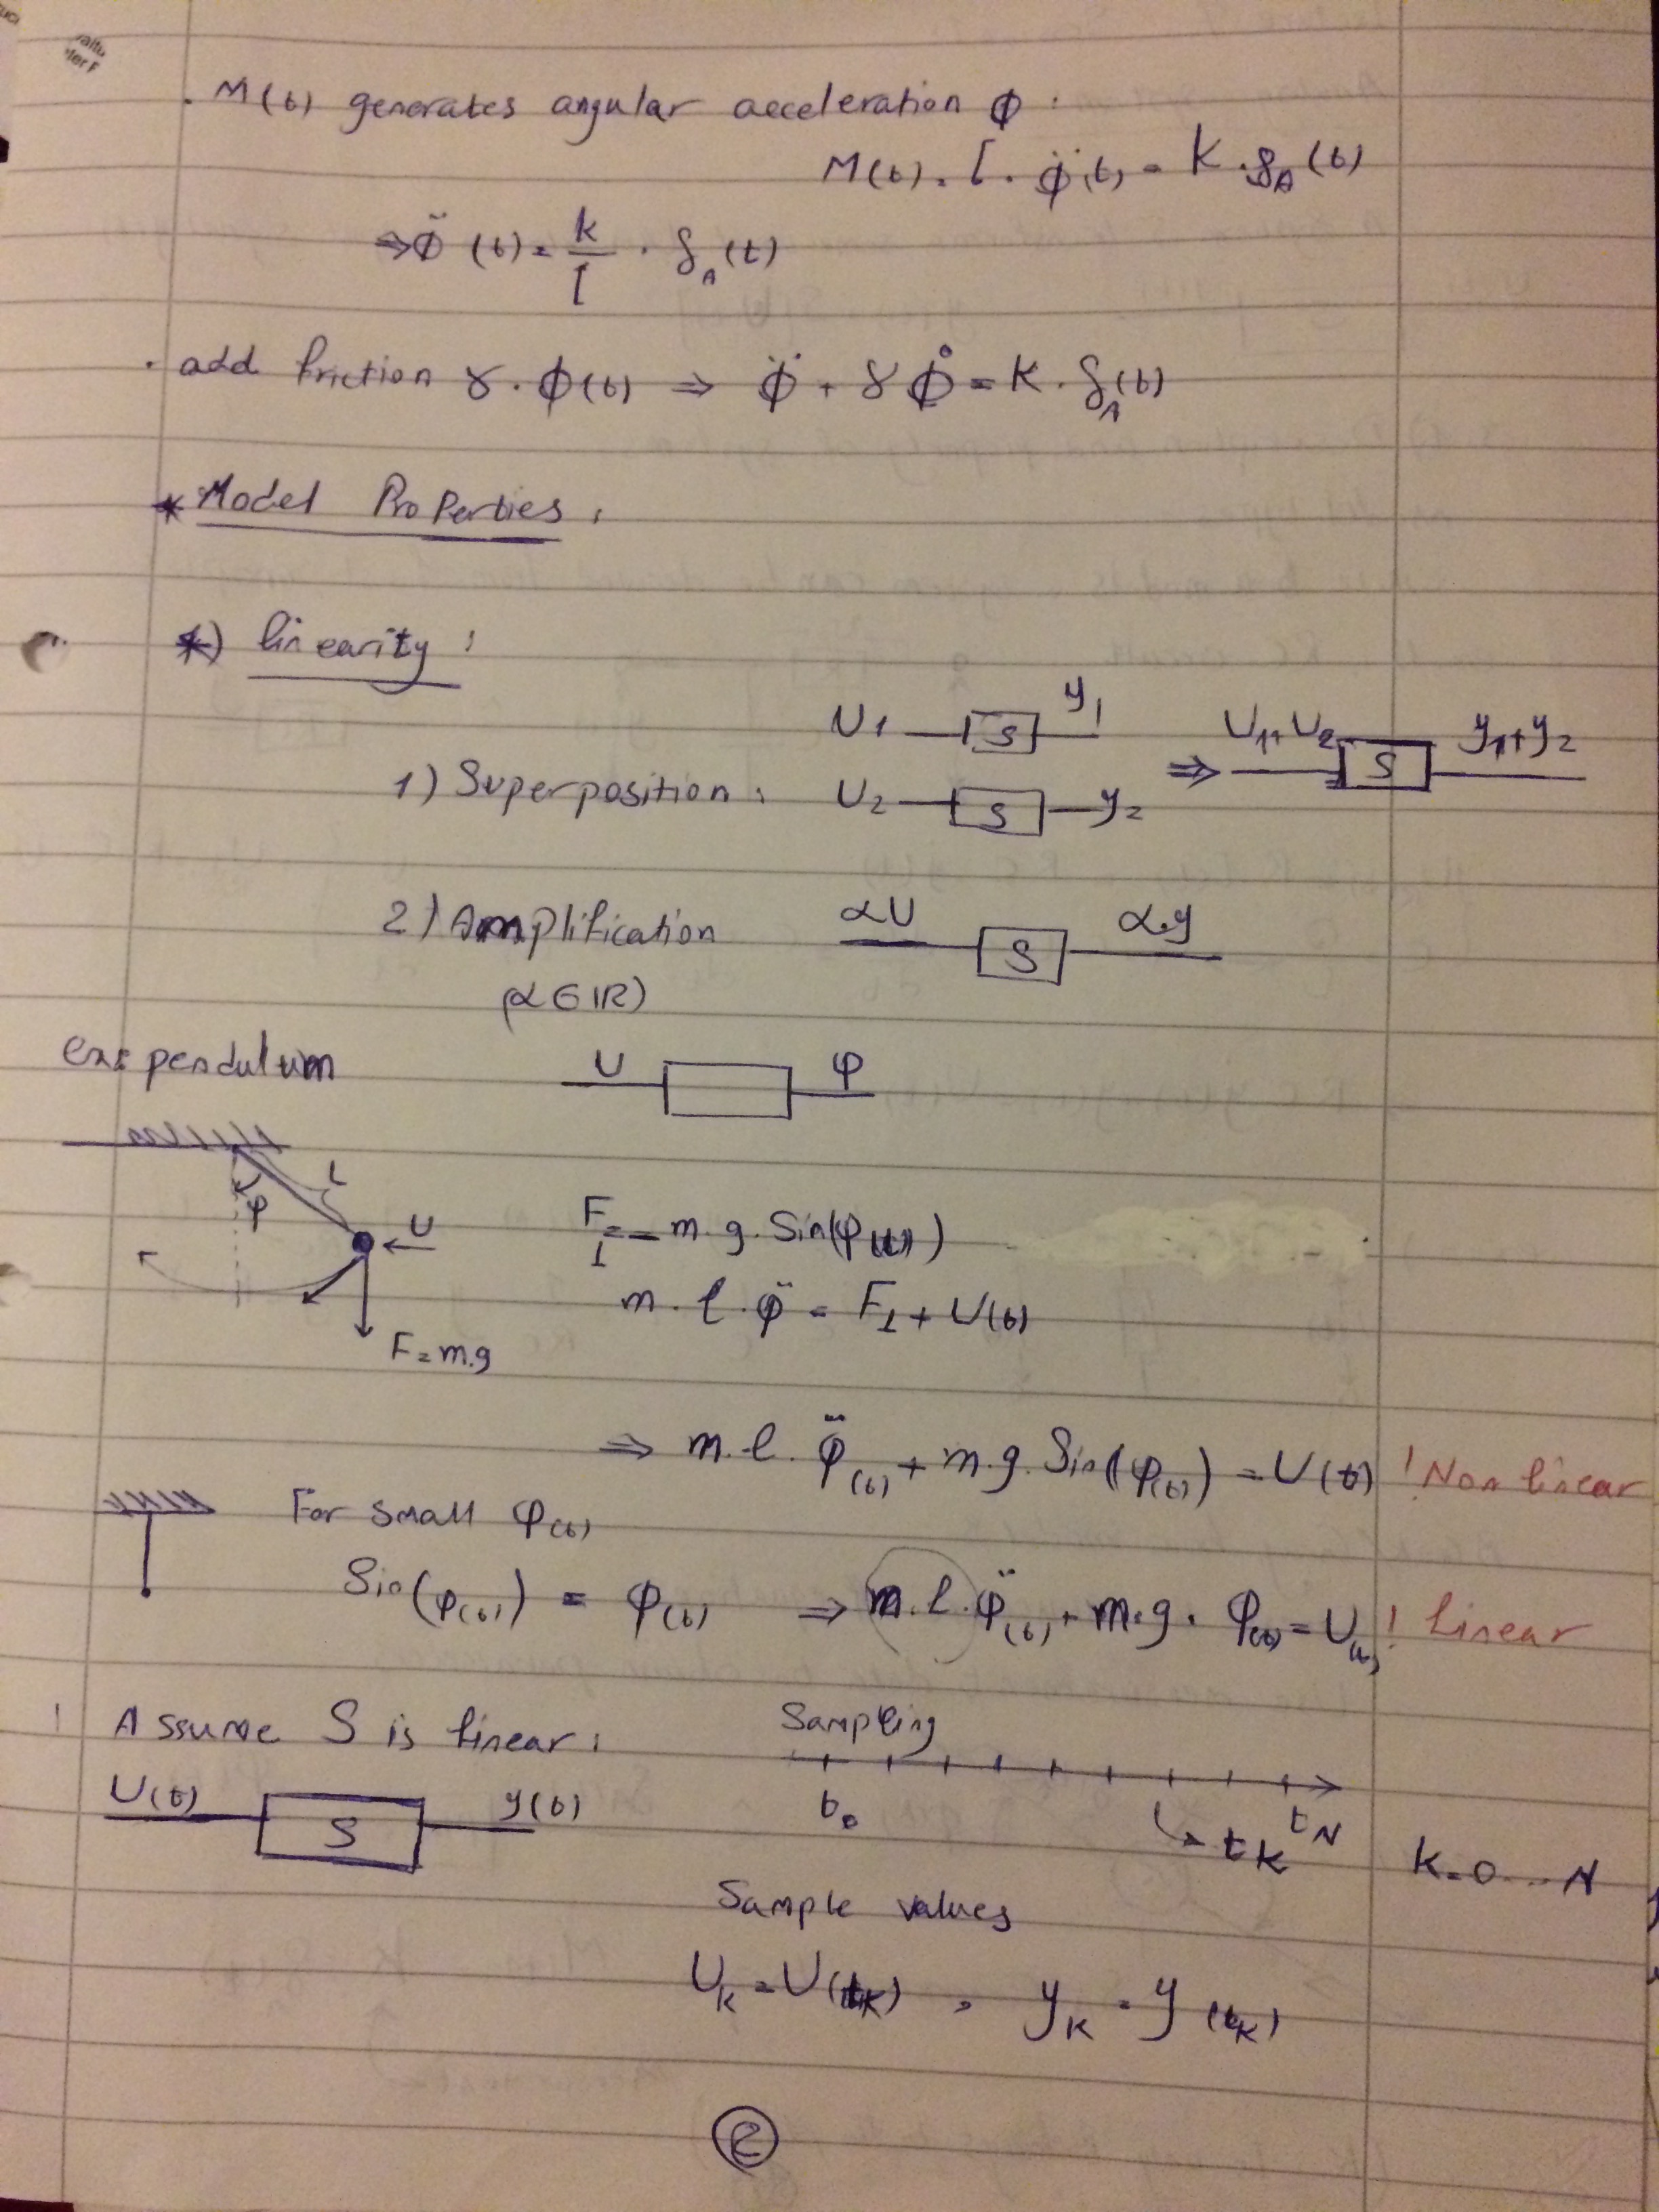 . M(t) generates angular acceleration ϕ :
M(t) = I . ϕ̈(t) = K . δ_A(t)
⇒ ϕ̈ (t) = k/I . δ_A(t)
. add friction γ . ϕ(t) ⇒ ϕ̈ + γ ϕ̇ = K . δ_A(t)
* Model Properties :
*) linearity :
U1 S y1
1) Superposition : U2 S y2 ⇒ U1+U2 S y1+y2
2) Amplification αU S α.y
(α∈IR)
ex: pendulum U φ
L
φ
U
F⊥ = -m.g. Sin(φ(t))
m . l . φ̈ = F⊥ + U(t)
F=m.g
⇒ m.l. φ̈(t) + m.g. Sin(φ(t)) = U(t) ! Non linear
For small φ(t)
Sin(φ(t)) = φ(t) ⇒ m.l.φ̈(t) + m.g. φ(t) = U(t) ! linear
! Assume S is linear : Sampling
U(t) S y(t) t0 tK tN K=0...N
Sample values
UK = U(tK) , yK = y(tK)
2